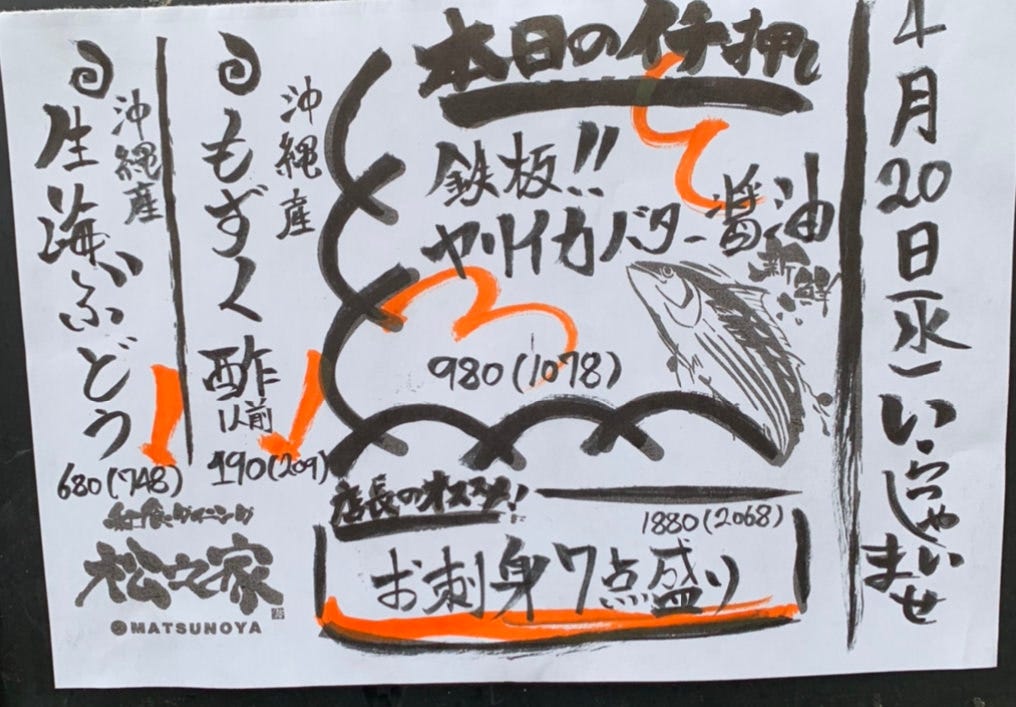 4月20日(水)いらっしゃいませ
本日のイチ押し
鉄板!!
ヤリイカバター醤油
新鮮
980(1078)
店長のオススメ!
1880(2068)
お刺身7点盛り
沖縄産
もずく酢
1人前
190(209)
沖縄産
生海ぶどう
680(748)
松之家
MATSUNOYA